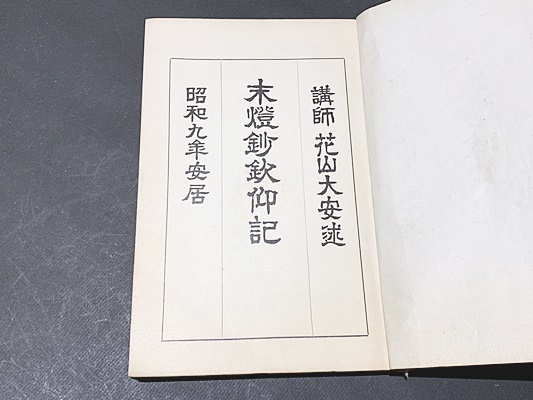 講師 花山大安述
末燈鈔欽仰記
昭和九年安居